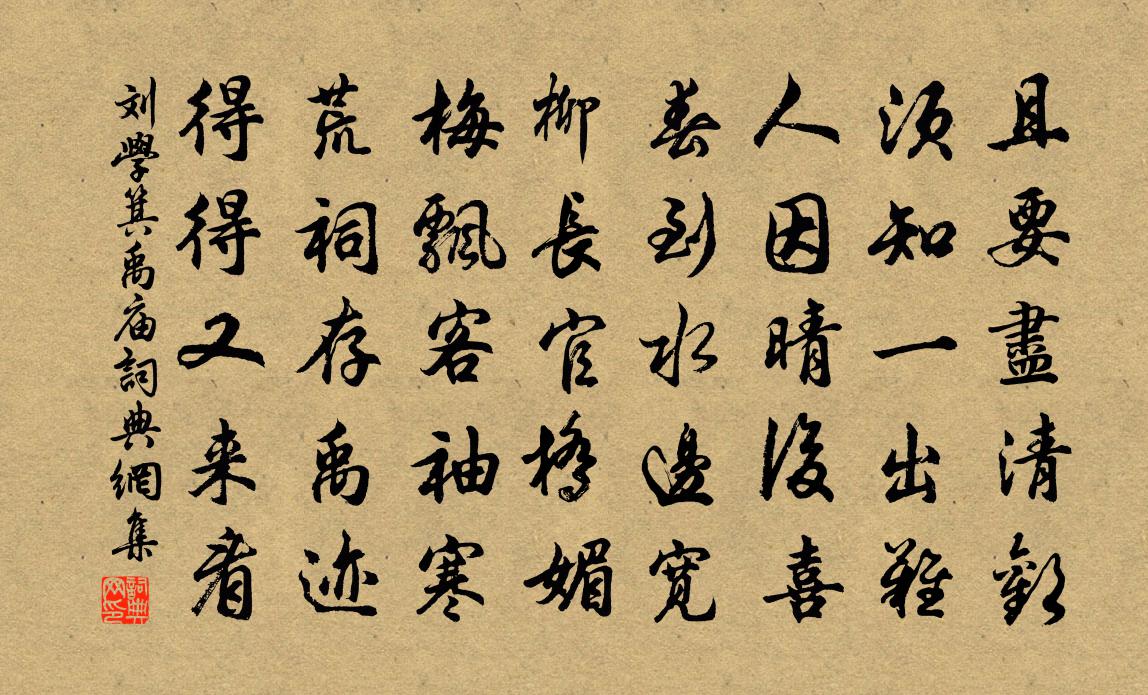 且要盡清歡
須知一出難
人因晴後喜
春到水邊寬
柳長官橋媚
梅飄客袖寒
荒祠存禹迹
得得又来看
刘學箕禹庙詞典網集
詞典網印